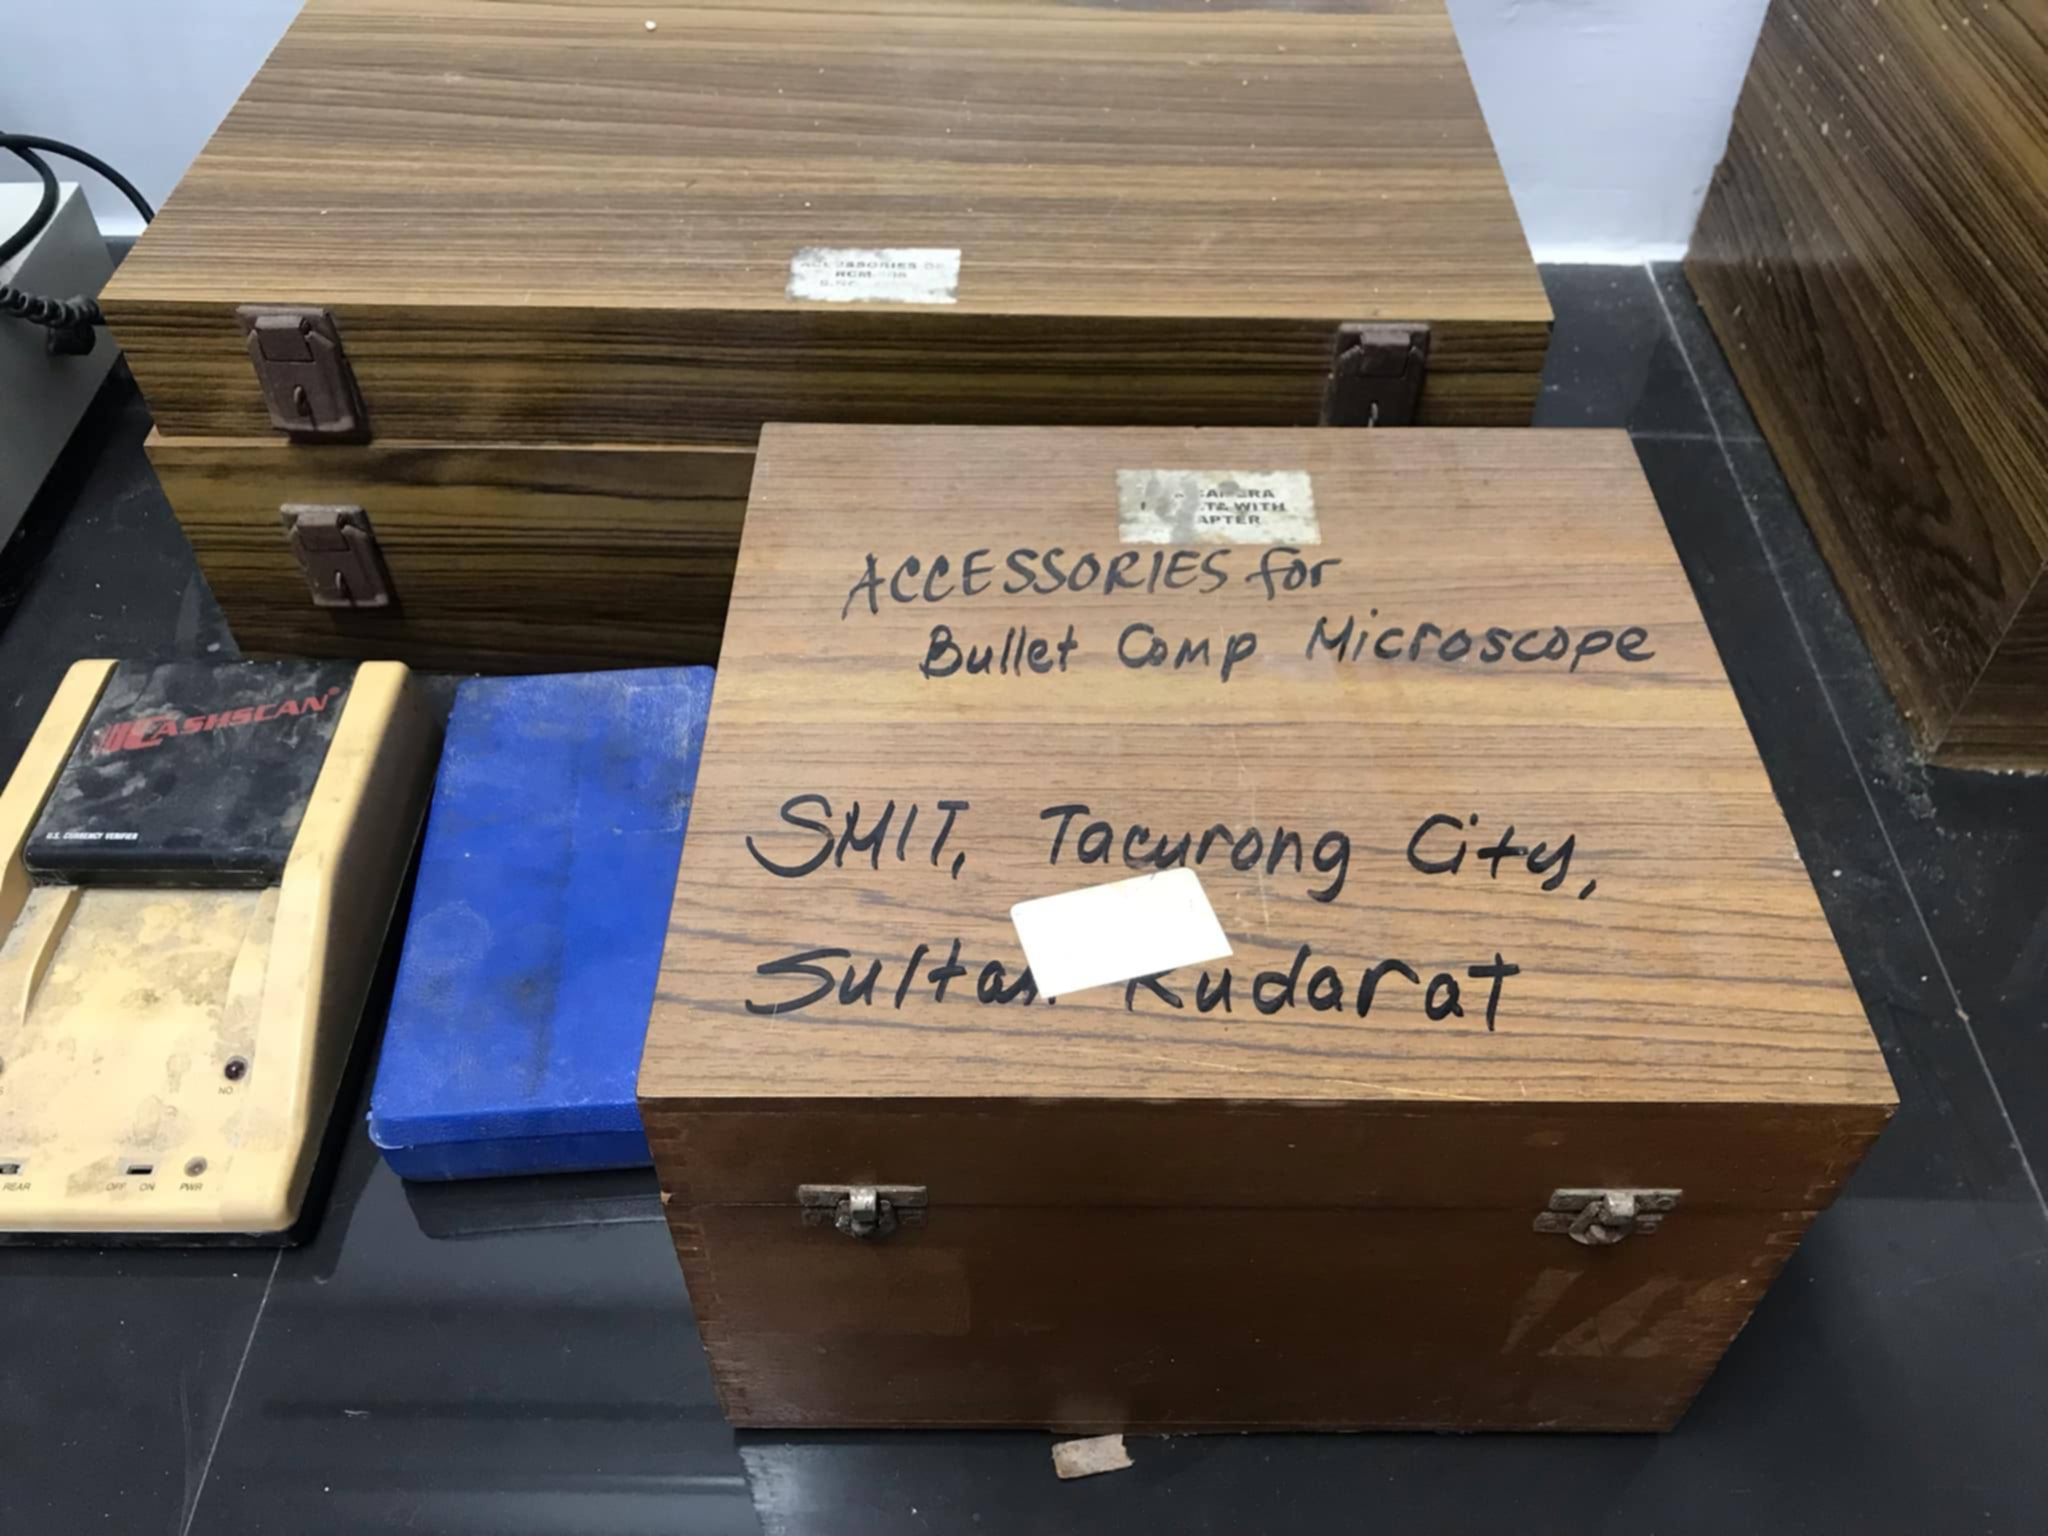 ACCESSORIES OF
WITH
ACCESSORIES for
Bullet Comp Microscope
SMIT, Tacurong City,
Kudarat
CASHSCAN®
U.S. CURRENCY VERIFIER
NO
REAR
OFF ON PWR